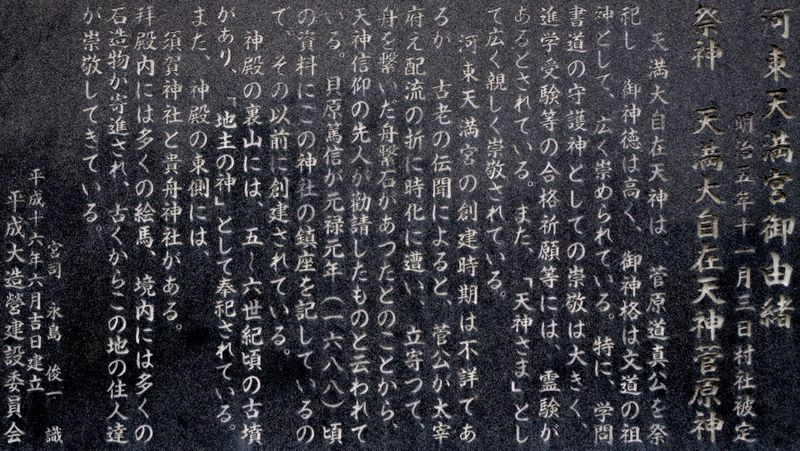 河東天満宮御由緒
明治五年十一月三日村社被定
祭神　天満大自在天神菅原神
天満大自在天神は　菅原道真公を祭
祀し　御神徳は高く、御神格は文道の祖
神として、広く崇められている。特に、学問
書道の守護神としての崇敬は大きく、
進学受験等の合格祈願等には、霊験が
あるとされている。また、「天神さま」とし
て広く親しく崇敬されている。
河東天満宮の創建時期は不詳であ
るが　古老の伝聞によると、菅公が太宰
府え配流の折に時化に遭い、立寄つて、
舟を繋いた舟繋石があつたとのことから、
天神信仰の先人が勧請したものと云われて
いる。貝原篤信が元禄元年（一六八八）頃
の資料にこの神社の鎮座を記しているの
で、その以前に創建されている。
神殿の裏山には、五～六世紀頃の古墳
があり、「地主の神」として奉祀されている。
また、神殿の東側には、
須賀神社と貴舟神社がある。
拝殿内には多くの絵馬、境内には多くの
石造物が寄進され、古くからこの地の住人達
が崇敬してきている。
宮司　永島　俊一　識
平成十六年六月吉日建立
平成大造営建設委員会